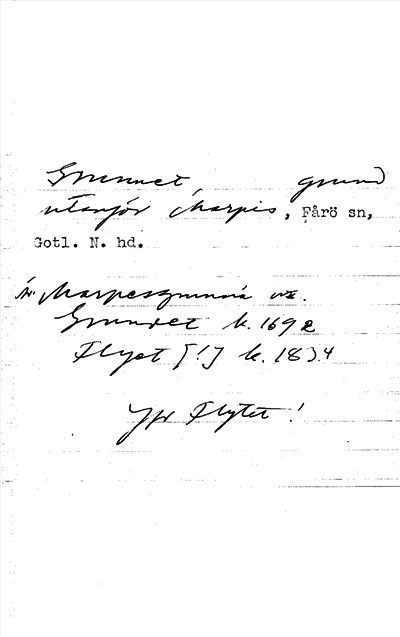 Grunnet, grund
utanför Marpis, Fårö sn,
Gotl. N. hd.
Marpesgrunnä
Grundet k. 1692
Flyet [!] k. 1834
Jfr Flytet!